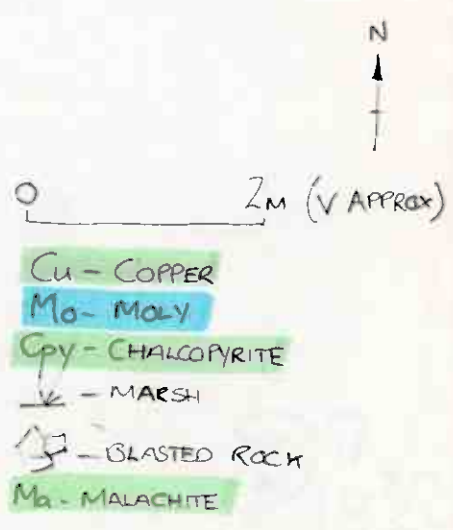 N
0 2M (V APPROX)
Cu - COPPER
Mo - MOLY
Cpy - CHALCOPYRITE
- MARSH
- BLASTED ROCK
Ma - MALACHITE